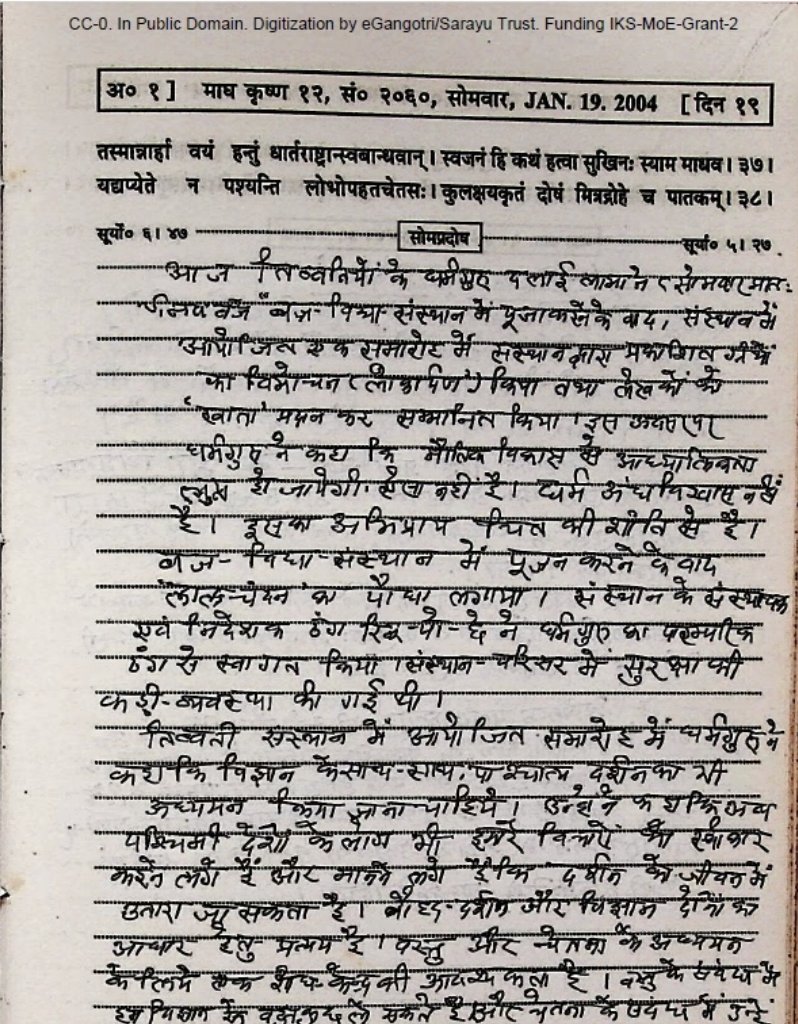 CC-0. In Public Domain. Digitization by eGangotri/Sarayu Trust. Funding IKS-MoE-Grant-2
अ० १ ] माघ कृष्ण १२, सं० २०६०, सोमवार, JAN. 19. 2004 [ दिन १९
तस्मान्नार्हा वयं हन्तुं धार्तराष्ट्रान्स्वबान्धवान्। स्वजनं हि कथं हत्वा सुखिनः स्याम माधव। ३७।
यद्यप्येते न पश्यन्ति लोभोपहतचेतसः। कुलक्षयकृतं दोषं मित्रद्रोहे च पातकम्। ३८।
सूर्यो० ६। ४७ सोमप्रदोष सूर्या० ५। २७
आज तिब्बतियों के धर्मगुरु दलाई लामा ने
वज्र-विद्या-संस्थान में पूजा करने के बाद, संस्थान में
आयोजित एक समारोह में संस्थान द्वारा प्रकाशित ग्रंथों
का विमोचन (लोकार्पण) किया तथा लेखकों को
'खाता' प्रदान कर सम्मानित किया। इस अवसर पर
धर्मगुरु ने कहा कि भौतिक विकास से आध्यात्मिकता
लुप्त हो जायेगी ऐसा नहीं है। धर्म अंधविश्वास नहीं
है। इसका अभिप्राय चित्त की शांति से है।
वज्र-विद्या-संस्थान में पूजन करने के बाद
'लाल-चंदन' का पौधा लगाया। संस्थान के संस्थापक
एवं निदेशक ने धर्मगुरु का पारम्परिक
ढंग से स्वागत किया। संस्थान-परिसर में सुरक्षा की
कड़ी-व्यवस्था की गई थी।
तिब्बती संस्थान में आयोजित समारोह में धर्मगुरु ने
कहा कि विज्ञान के साथ-साथ, पाश्चात्य दर्शन का भी
अध्ययन किया जाना चाहिये। उन्होंने कहा कि अब
पश्चिमी देशों के लोग भी हमारे विचारों को स्वीकार
करने लगे हैं और मानने लगे हैं कि दर्शन को जीवन में
उतारा जा सकता है। बौद्ध-दर्शन और विज्ञान दोनों का
आधार हेतु प्रत्यय है। वस्तु और चेतना के अध्ययन
के लिये एक शोध-केन्द्र की आवश्यकता है। वस्तु के संबंध में
हम विज्ञान से सकते हैं और चेतना के संबंध में उन्हें